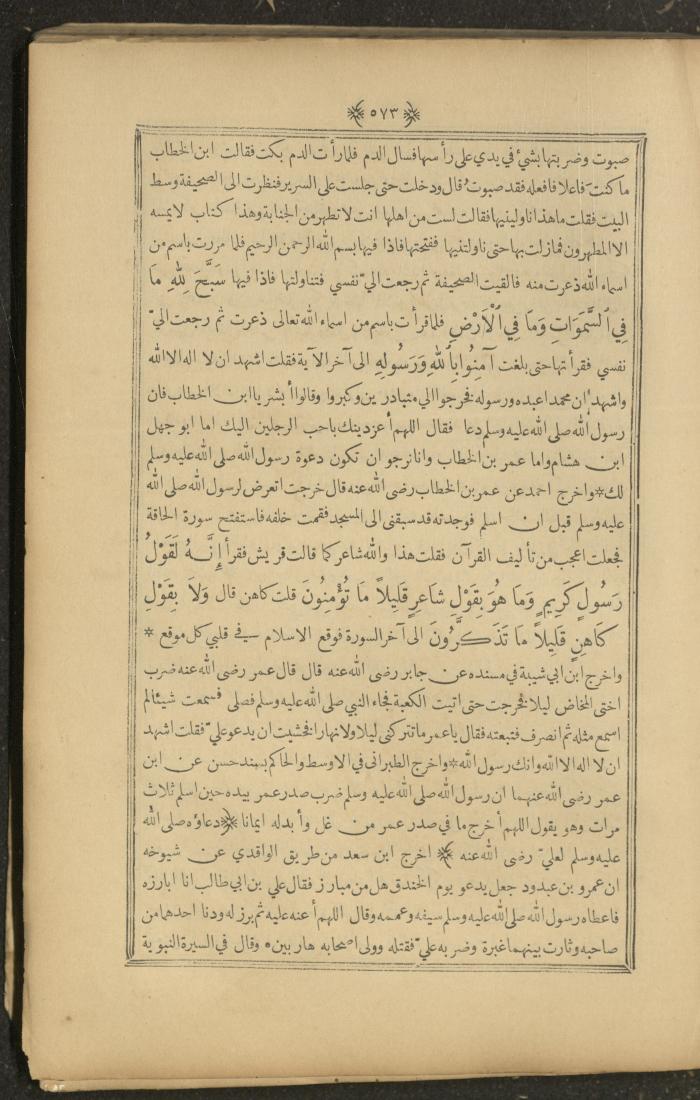 ﴿ ٥٧٣ ﴾
صبوت وضربتها بشيء في يدي على رأسها فسال الدم فلما رأت الدم بكت فقالت ابن الخطاب
ما كنت فاعلا فافعله فقد صبوت قال ودخلت حتى جلست على السرير فنظرت الى الصحيفة وسط
البيت فقلت ما هذا ناولينيها فقالت لست من اهلها انت لا تطهر من الجنابة وهذا كتاب لا يمسه
الا المطهرون فمازلت بها حتى ناولتنيها ففتحتها فاذا فيها بسم الله الرحمن الرحيم فلما مررت باسم من
اسماء الله ذعرت منه فالقيت الصحيفة ثم رجعت اليّ نفسي فتناولتها فاذا فيها سَبَّحَ لِلّٰهِ مَا
فِي ٱلسَّمَوَاتِ وَمَا فِي ٱلْأَرْضِ فلما قرأت باسم من اسماء الله تعالى ذعرت ثم رجعت اليّ
نفسي فقرأتها حتى بلغت آمِنُوا بِٱللهِ وَرَسُولِهِ الى آخر الآية فقلت اشهد ان لا اله الا الله
واشهد ان محمدا عبده ورسوله فخرجوا الي متبادرين وكبروا وقالوا أبشر يا ابن الخطاب فان
رسول الله صلى الله عليه وسلم دعا فقال اللهم أعز دينك باحب الرجلين اليك اما ابو جهل
ابن هشام واما عمر بن الخطاب وانا نرجو ان تكون دعوة رسول الله صلى الله عليه وسلم
لك * واخرج احمد عن عمر بن الخطاب رضى الله عنه قال خرجت اتعرض لرسول الله صلى الله
عليه وسلم قبل ان اسلم فوجدته قد سبقنى الى المسجد فقمت خلفه فاستفتح سورة الحاقة
فجعلت اعجب من تأليف القرآن فقلت هذا والله شاعر كما قالت قريش فقرأ إِنَّهُ لَقَوْلُ
رَسُولٍ كَرِيمٍ وَمَا هُوَ بِقَوْلِ شَاعِرٍ قَلِيلاً مَا تُؤْمِنُونَ قلت كاهن قال وَلَا بِقَوْلِ
كَاهِنٍ قَلِيلاً مَا تَذَكَّرُونَ الى آخر السورة فوقع الاسلام في قلبي كل موقع *
واخرج ابن ابي شيبة في مسنده عن جابر رضى الله عنه قال قال عمر رضى الله عنه ضرب
اختى المخاض ليلا فخرجت حتى اتيت الكعبة فجاء النبي صلى الله عليه وسلم فصلى فسمعت شيئا لم
اسمع مثله ثم انصرف فتبعته فقال يا عمر ما تتركنى ليلا ولا نهارا فخشيت ان يدعو عليّ فقلت اشهد
ان لا اله الا الله وانك رسول الله * واخرج الطبرانى في الاوسط والحاكم بسند حسن عن ابن
عمر رضى الله عنهما ان رسول الله صلى الله عليه وسلم ضرب صدر عمر بيده حين اسلم ثلاث
مرات وهو يقول اللهم أخرج ما في صدر عمر من غل وأبدله ايمانا ﴿ دعاؤه صلى الله
عليه وسلم لعليّ رضى الله عنه ﴾ اخرج ابن سعد من طريق الواقدي عن شيوخه
ان عمرو بن عبدود جعل يدعو يوم الخندق هل من مبارز فقال علي بن ابي طالب انا ابارزه
فاعطاه رسول الله صلى الله عليه وسلم سيفه وعممه وقال اللهم أعنه عليه ثم برز له ودنا احدهما من
صاحبه وثارت بينهما غبرة وضربه عليّ فقتله وولى اصحابه هاربين * وقال في السيرة النبوية